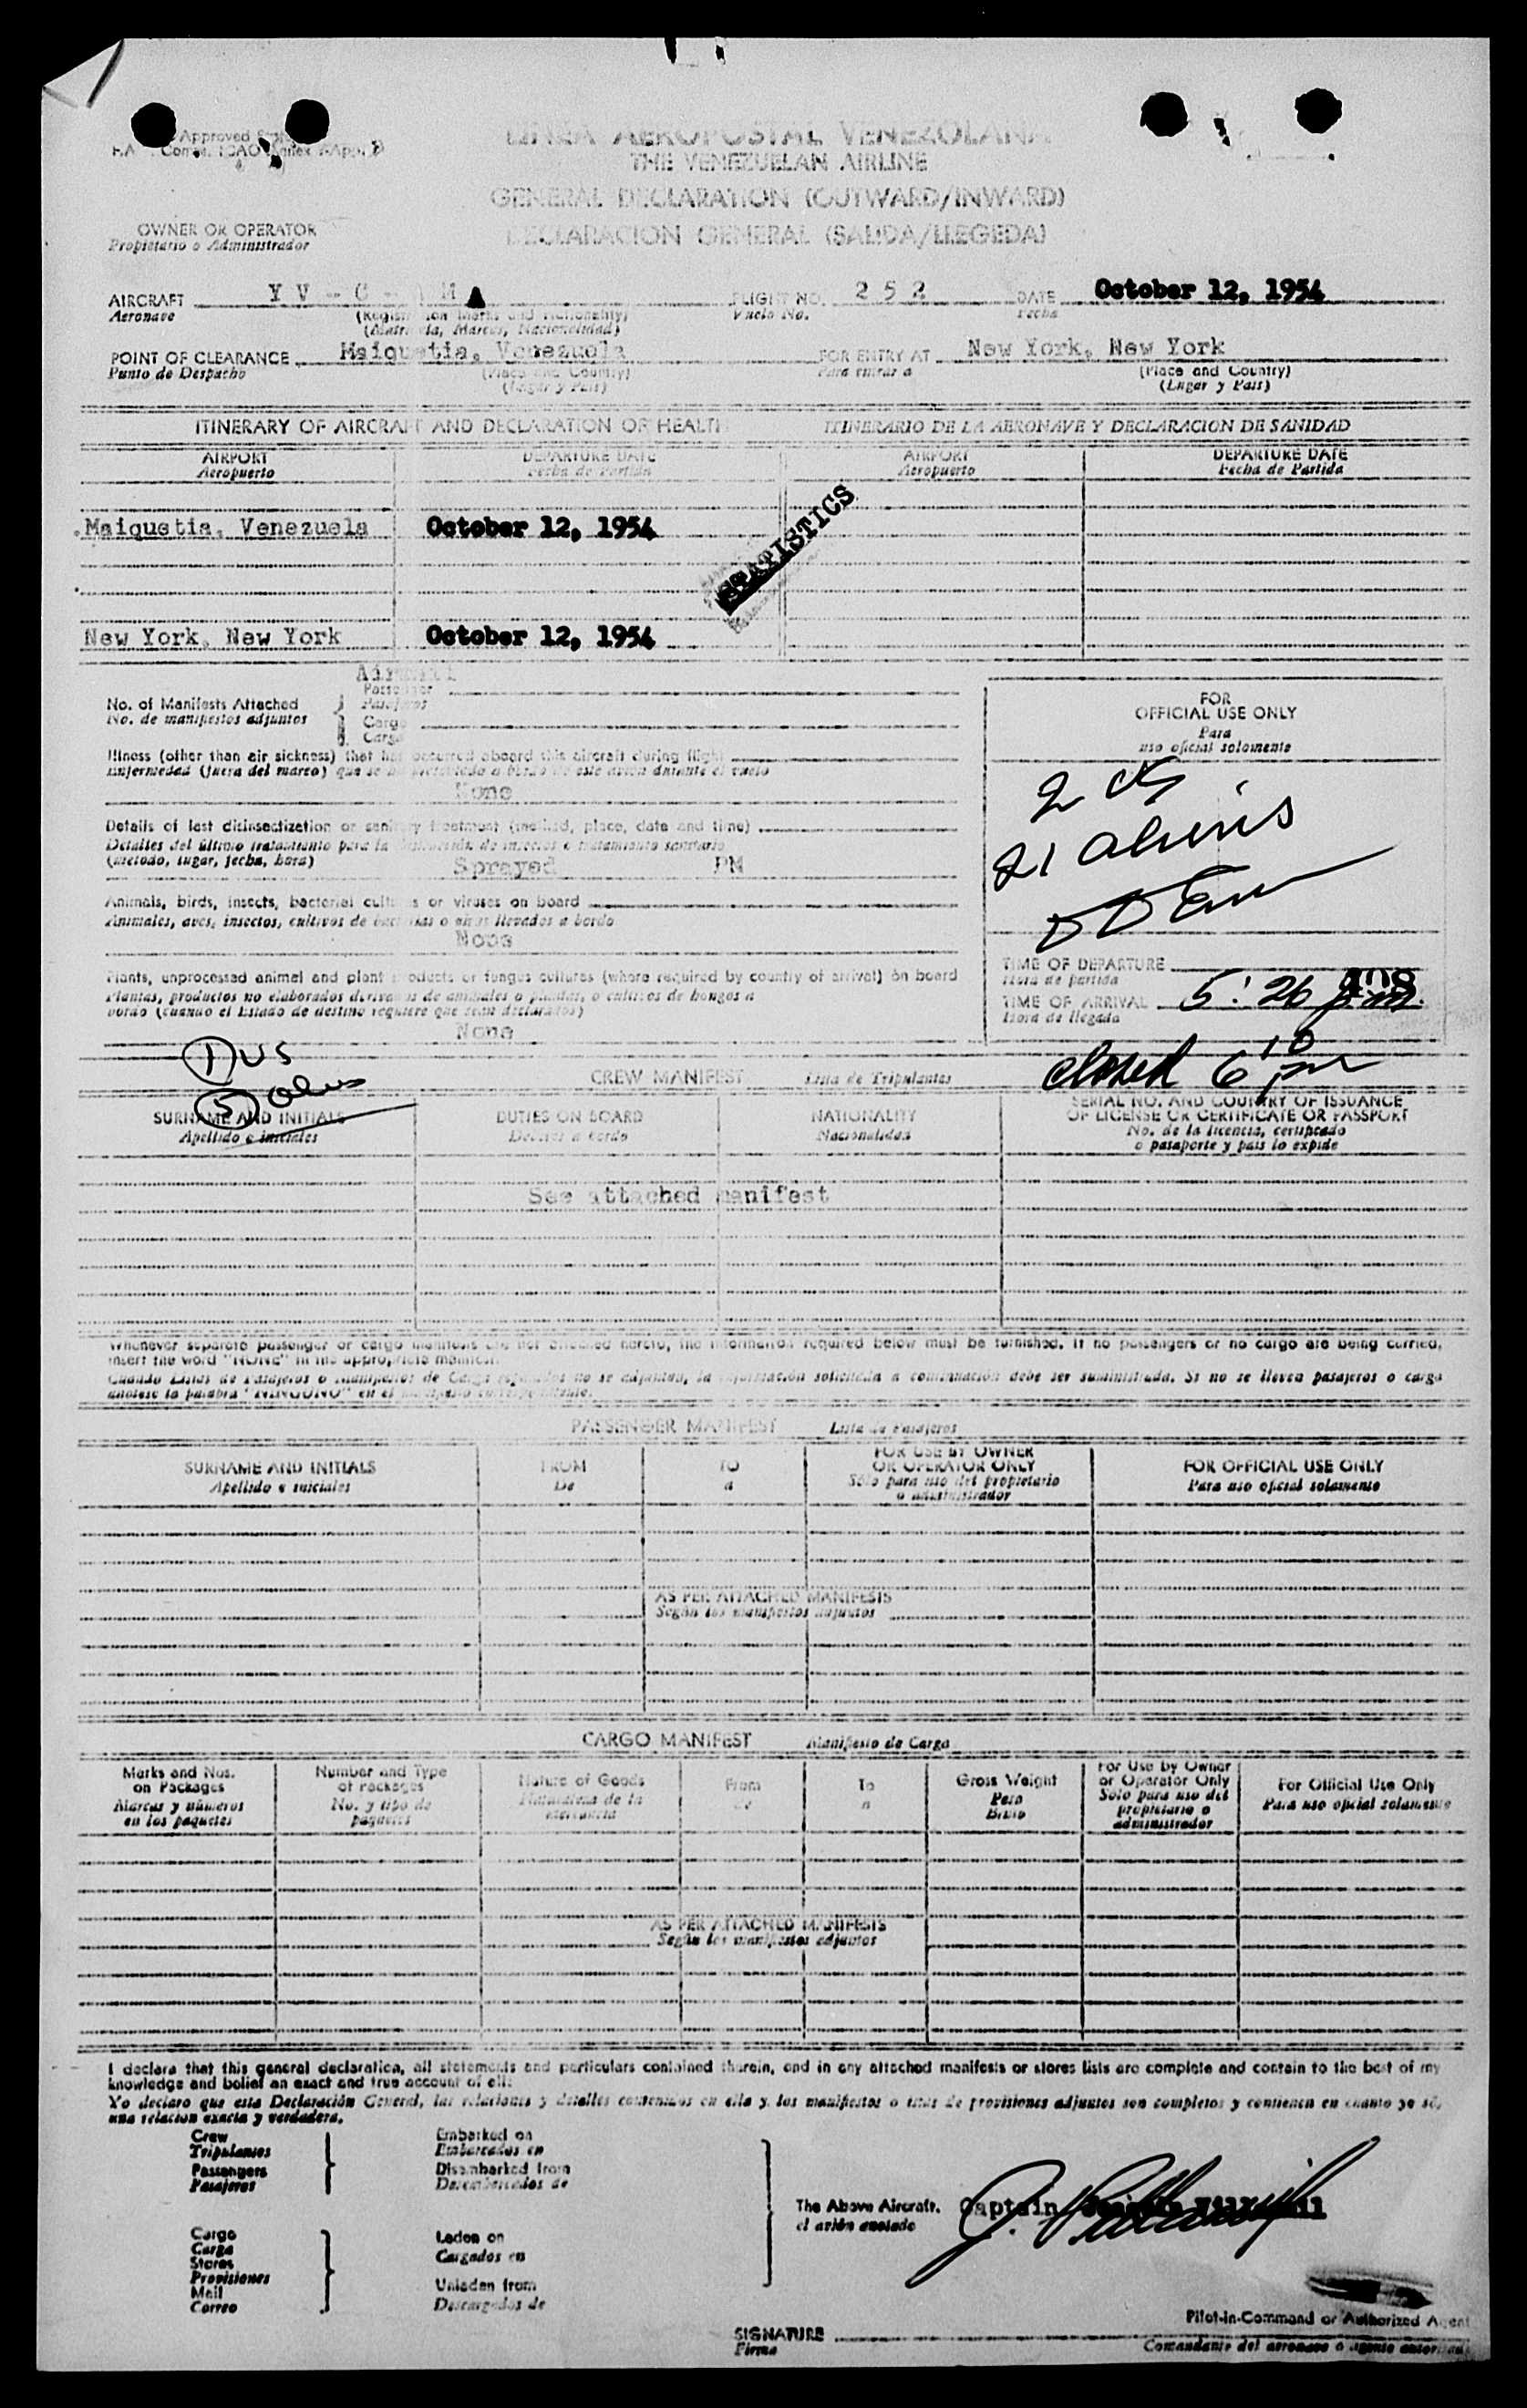 Approved
LINEA AEROPOSTAL VENEZOLANA
THE VENEZUELAN AIRLINE
GENERAL DECLARATION (OUTWARD/INWARD)
DECLARACION GENERAL (SALIDA/LLEGEDA)
OWNER OR OPERATOR
Propietario o Administrador
AIRCRAFT Y V - C - M A FLIGHT NO. 2 5 2 DATE October 12, 1954
Aeronave Vuelo No. Fecha
(Matrícula, Marcas, Nacionalidad)
POINT OF CLEARANCE Maiquetia, Venezuela FOR ENTRY AT New York, New York
Punto de Despacho (Place and Country) Para entrar a (Place and Country)
(Lugar y País) (Lugar y País)
ITINERARY OF AIRCRAFT AND DECLARATION OF HEALTH ITINERARIO DE LA AERONAVE Y DECLARACION DE SANIDAD
AIRPORT DEPARTURE DATE AIRPORT DEPARTURE DATE
Aeropuerto Fecha de Partida Aeropuerto Fecha de Partida
STATISTICS
Maiquetia, Venezuela October 12, 1954
New York, New York October 12, 1954
No. of Manifests Attached Passenger
No. de manifiestos adjuntos Pasajeros
Cargo
Carga
Illness (other than air sickness) that has occurred aboard this aircraft during flight
Enfermedad (fuera del mareo) que se ha presentado a bordo de este avión durante el vuelo
None
Details of last disinsectization or sanitary treatment (method, place, date and time)
Detalles del último tratamiento para la destrucción de insectos o tratamiento sanitario
(metodo, lugar, fecha, hora)
Sprayed PM
Animals, birds, insects, bacterial cultures or viruses on board
Animales, aves, insectos, cultivos de bacterias o virus llevados a bordo
None
Plants, unprocessed animal and plant products or fungus cultures (where required by country of arrival) on board
Plantas, productos no elaborados derivados de animales o plantas, o cultivos de hongos a
bordo (cuando el Estado de destino requiere que sean declarados)
None
FOR
OFFICIAL USE ONLY
Para
uso oficial solamente
21 aliens
TIME OF DEPARTURE
Hora de partida
TIME OF ARRIVAL 5:26 p.m.
Hora de llegada
closed 6 10 pm
1 US
CREW MANIFEST Lista de Tripulantes
SURNAME AND INITIALS DUTIES ON BOARD NATIONALITY SERIAL NO. AND COUNTRY OF ISSUANCE
OF LICENSE OR CERTIFICATE OR PASSPORT
Apellido e iniciales Deberes a bordo Nacionalidad No. de la licencia, certificado
o pasaporte y pais lo expide
See attached manifest
Whenever separate passenger or cargo manifests are not attached hereto, the information required below must be furnished. If no passengers or no cargo are being carried,
insert the word "NONE" in the appropriate manifest.
Cuando Listas de Pasajeros o Manifiestos de Carga separados no se adjuntan, la información solicitada a continuación debe ser suministrada. Si no se llevea pasajeros o carga
anótese la palabra "NINGUNO" en el manifiesto correspondiente.
PASSENGER MANIFEST Lista de Pasajeros
SURNAME AND INITIALS FROM TO FOR USE BY OWNER OR OPERATOR ONLY FOR OFFICIAL USE ONLY
Apellido e iniciales De a Sólo para uso del propietario o administrador Para uso oficial solamente
AS PER ATTACHED MANIFESTS
Según los manifiestos adjuntos
CARGO MANIFEST Manifiesto de Carga
Marks and Nos. on Packages Number and Type of Packages Nature of Goods From To Gross Weight For Use by Owner or Operator Only For Official Use Only
Marcas y números en los paquetes No. y tipo de paquetes Naturaleza de la mercancía De a Peso Bruto Sólo para uso del propietario o administrador Para uso oficial solamente
AS PER ATTACHED MANIFESTS
Según los manifiestos adjuntos
I declare that this general declaration, all statements and particulars contained therein, and in any attached manifests or stores lists are complete and contain to the best of my
knowledge and belief an exact and true account of all:
Yo declaro que esta Declaración General, las relaciones y detalles contenidos en ella y los manifiestos o listas de provisiones adjuntos son completos y contienen en cuanto yo sé,
una relación exacta y verdadera.
Crew Embarked on
Tripulantes Embarcados en
Passengers Disembarked from
Pasajeros Desembarcados de
The Above Aircraft. Captain
el avión anotado
Cargo Laden on
Carga Cargados en
Stores
Provisiones
Mail Unladen from
Correo Descargados de
Pilot-in-Command or Authorized Agent
SIGNATURE
Firma Comandante del aeronave o agente